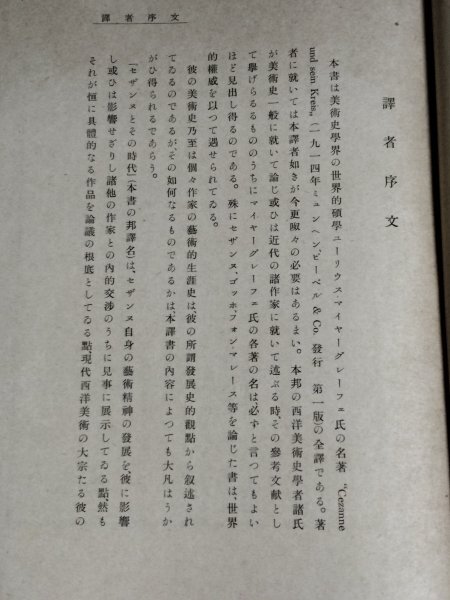 譯者序文
譯者序文
本書は美術史學界の世界的碩學ユーリウス・マイヤーグレーフェ氏の名著 “Cezanne
und sein Kreis„ (一九一四年ミュンヘン、ピーペル & Co. 發行 第一版)の全譯である。著
者に就いては本譯者如きが今更呶々の必要はあるまい。本邦の西洋美術史學者諸氏
が美術史一般に就いて論じ或ひは近代の諸作家に就いて述ぶる時その參考文献とし
て擧げらるるもののうちにマイヤーグレーフェ氏の各著の名は、必ずと言つてもよい
ほど見出し得るのである。殊にセザンヌ、ゴッホ、フォン・マレース等を論じた書は、世界
的權威を以つて遇せられてゐる。
彼の美術史乃至は個々作家の藝術的生涯史は、彼の所謂發展史的觀點から叙述され
てゐるのであるが、その如何なるものであるかは、本譯書の内容によつても大凡はうか
がひ得られるであらう。
「セザンヌとその時代」(本書の邦譯名)は、セザンヌ自身の藝術精神の發展を、彼に影響
し或ひは影響せざりし諸他の作家との内的交渉のうちに見事に展示してゐる點、然も
それが恒に具體的なる作品を論議の根底としてゐる點、現代西洋美術の大宗たる彼の